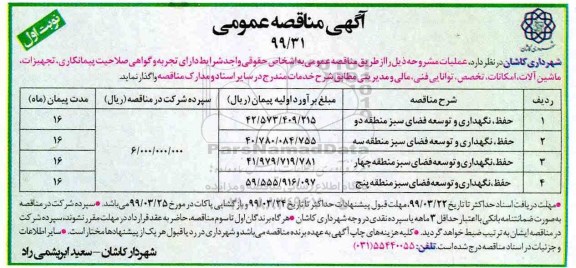 نوبت اول
آگهی مناقصه عمومی
۹۹/۳۱
شهرداری کاشان
شهرداری کاشان در نظر دارد، عملیات مشروحه ذیل را از طریق مناقصه عمومی به اشخاص حقوقی واجد شرایط دارای تجربه و گواهی صلاحیت پیمانکاری، تجهیزات،
ماشین آلات، امکانات، تخصص، توانایی فنی، مالی و مدیریتی مطابق شرح خدمات مندرج در سایر اسناد و مدارک مناقصه واگذار نماید.
ردیف شرح مناقصه مبلغ برآورد اولیه پیمان (ریال) سپرده شرکت در مناقصه (ریال) مدت پیمان (ماه)
۱ حفظ، نگهداری و توسعه فضای سبز منطقه دو ۴۲/۵۷۳/۴۰۹/۲۱۵ ۱۶
۲ حفظ، نگهداری و توسعه فضای سبز منطقه سه ۴۰/۷۸۰/۰۸۴/۷۵۵ ۱۶
۶/۰۰۰/۰۰۰/۰۰۰
۳ حفظ، نگهداری و توسعه فضای سبز منطقه چهار ۴۱/۹۷۹/۷۱۹/۷۸۱ ۱۶
۴ حفظ، نگهداری و توسعه فضای سبز منطقه پنج ۵۹/۵۵۵/۹۱۶/۰۹۷ ۱۶
• مهلت دریافت اسناد حداکثر تا تاریخ ۹۹/۰۳/۲۲، مهلت قبول پیشنهادات حداکثر تا تاریخ ۹۹/۰۳/۲۴ و بازگشایی پاکات در مورخ ۹۹/۰۳/۲۵ می‌باشد. • سپرده شرکت در مناقصه
به صورت ضمانتنامه بانکی با اعتبار حداقل ۳ ماهه یا سپرده نقدی در وجه شهرداری کاشان • هرگاه برندگان اول تا سوم مناقصه، حاضر به عقد قرارداد در مهلت مقرر نشوند، سپرده شرکت
در مناقصه ایشان به ترتیب ضبط خواهد گردید. • کلیه هزینه های چاپ آگهی به عهده برنده مناقصه می‌باشد و شهرداری در رد یا قبول هر یک از پیشنهادها مختار است. • سایر اطلاعات
و جزئیات در اسناد مناقصه درج شده است. تلفن: ۵۵۴۴۰۰۵۵ (۰۳۱)
شهردار کاشان - سعید ابریشمی راد